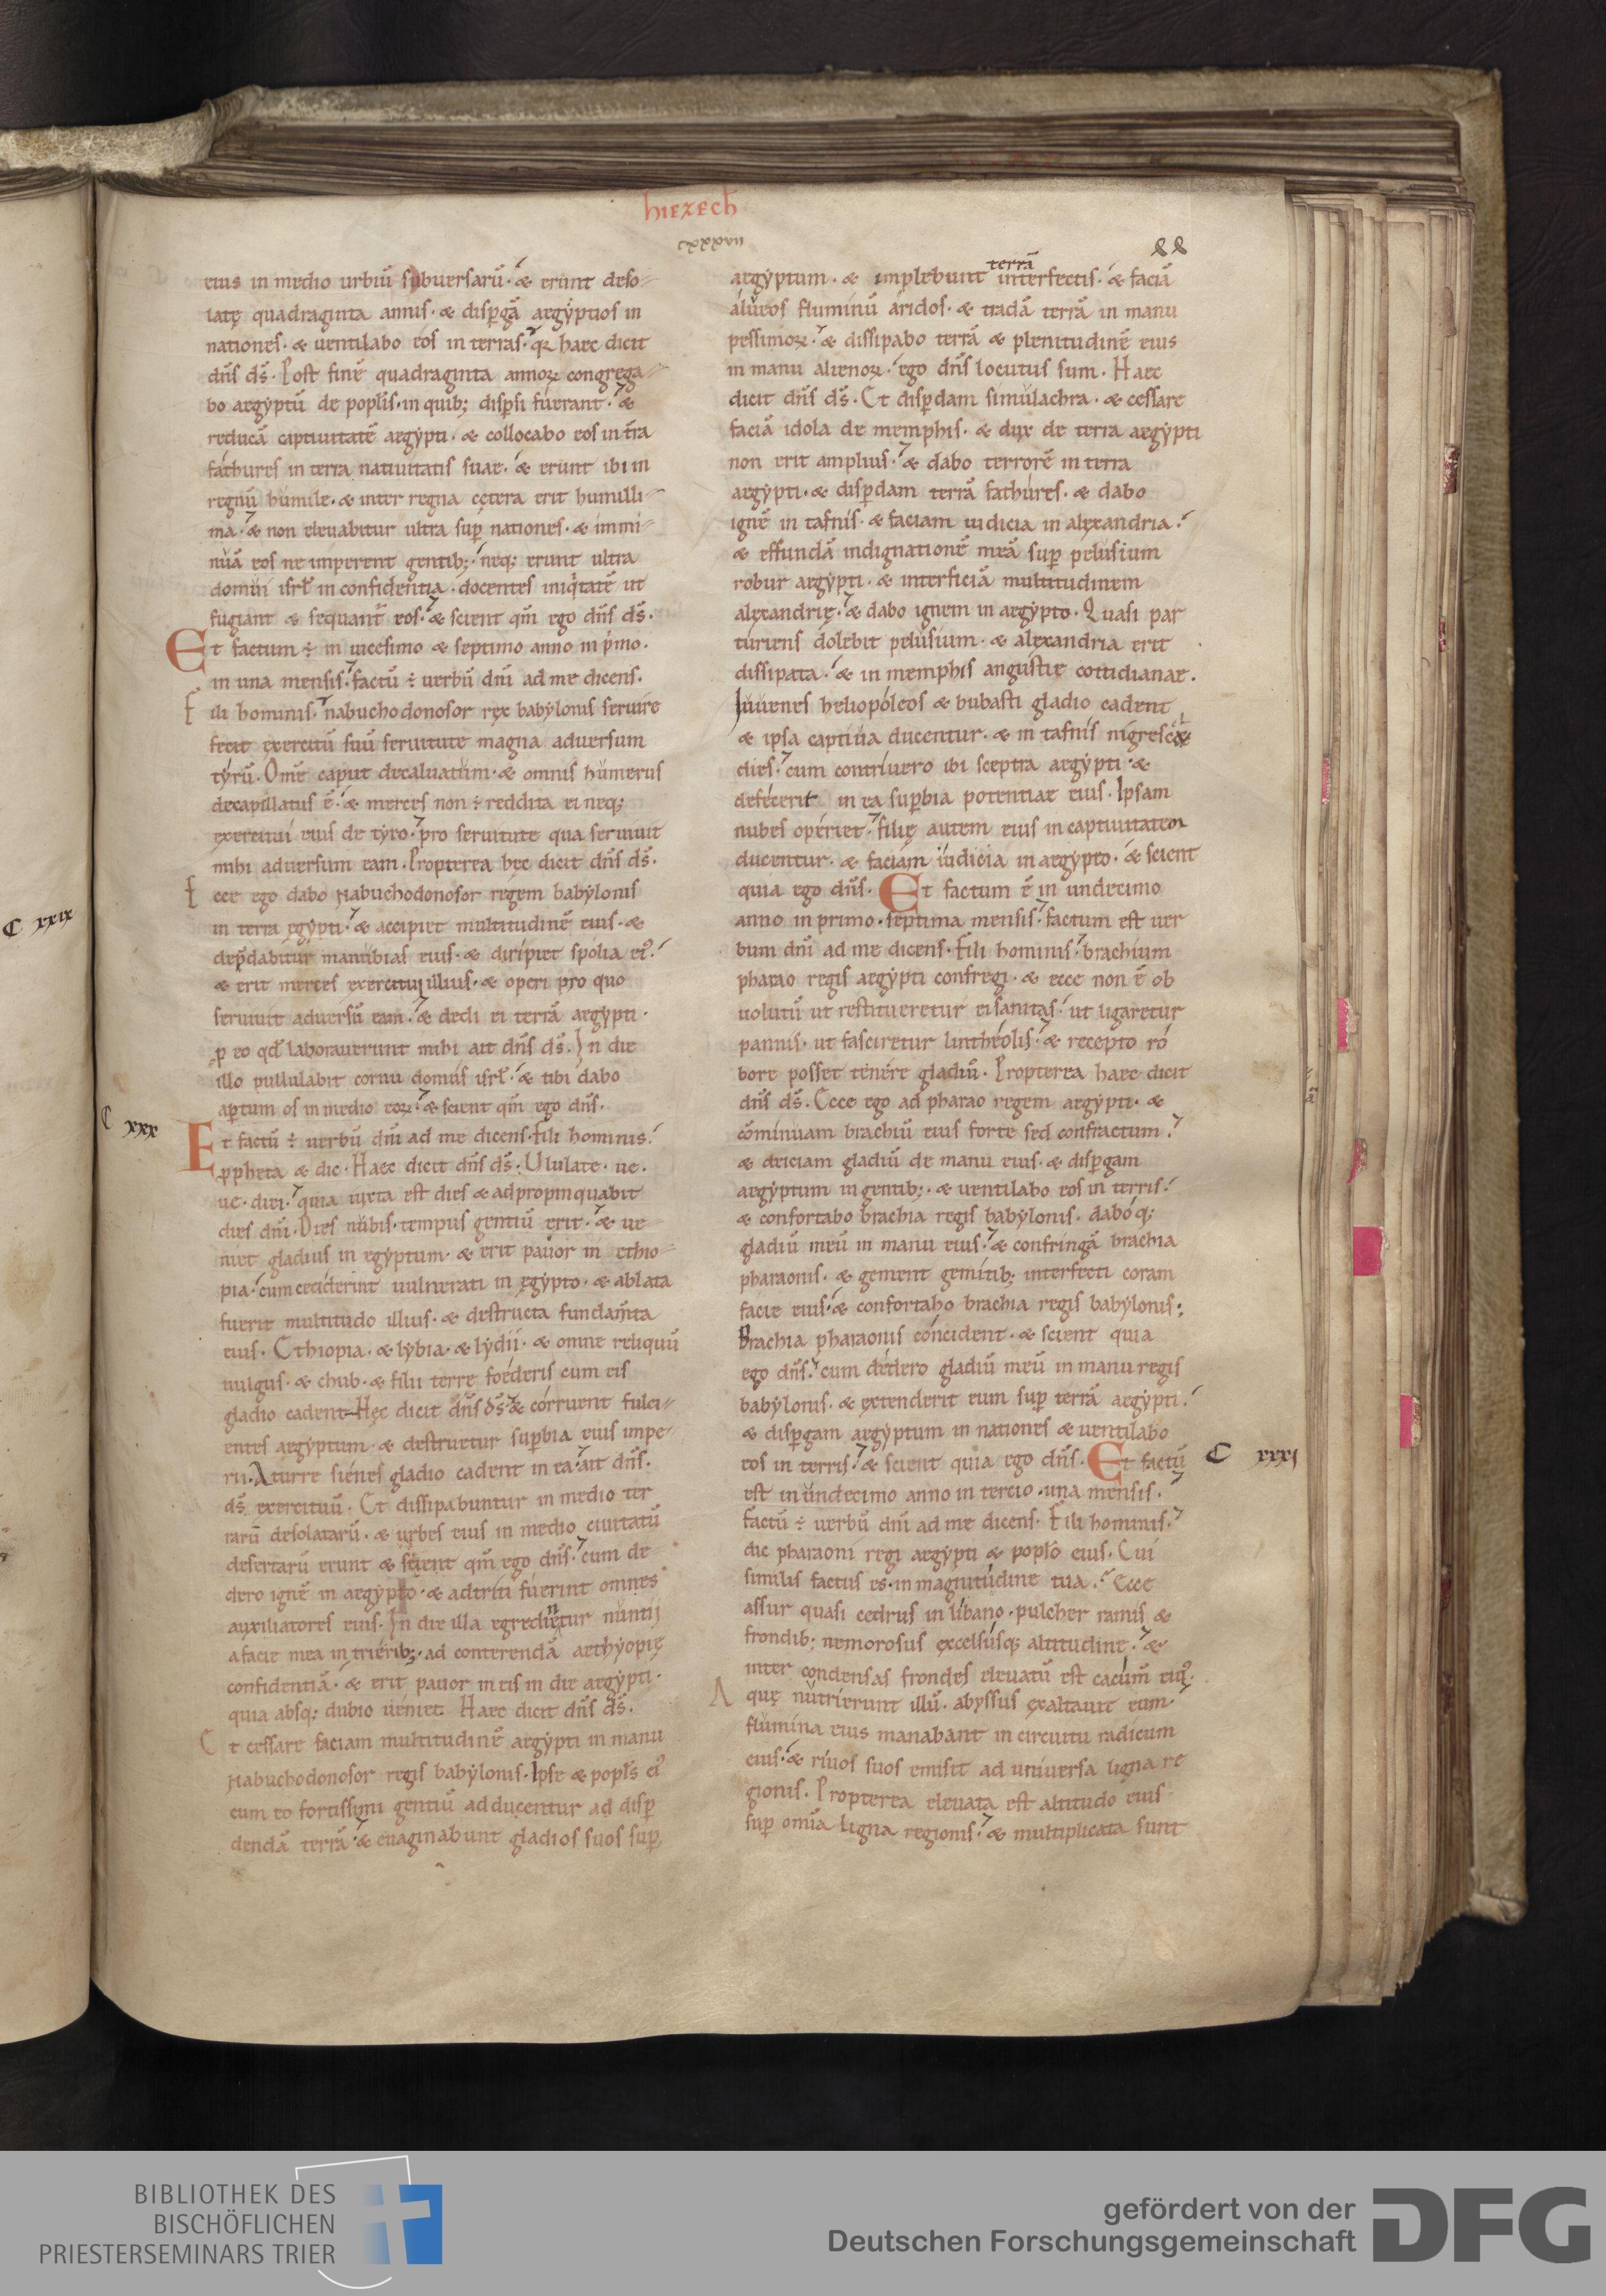 hiezech
cxxxvii
eius in medio urbiū subuersarū· & erunt deso-
latę quadraginta annis· & disp̄gā aegẏptios in
nationes· & uentilabo eos in terras· q̄a haec dicit
dn̄s ds̄· Post finē quadraginta annoꝝ congrega-
bo aegẏptū de popl̄is· in quib; disp̄si fuerant· &
reducā captiuitatē aegẏpti· & collocabo eos in t̄ra
fathures in terra natiuitatis suae· & erunt ibi in
regnū humile· & inter regna cętera erit humilli-
ma· & non eleuabitur ultra sup̄ nationes· & immi-
nuā eos ne imperent gentib; neq; erunt ultra
domui isrl̄ in confidentia· docentes iniq̇tatē ut
fugiant & sequant̄ eos· & scient qm̄ ego dn̄s ds̄·
Et factum ÷ in uicesimo & septimo anno in ṗmo·
in una mensis· factū ÷ uerbū dn̄i ad me dicens·
Fili hominis· nabuchodonosor rex babẏlonis seruire
fecit exercitū suū seruitute magna aduersum
tẏrū· Om̄e caput decaluatum· & omnis humerus
decapillatus ē· & merces non ÷ reddita ei neq;
exercitui eius de tẏro· pro seruitute qua seruiuit
mihi aduersum eam· Propterea hęc dicit dn̄s ds̄·
Ecce ego dabo Nabuchodonosor regem babẏlonis
in terra egẏpti· & accipiet multitudinē eius· &
dep̄dabitur manubias eius· & diripiet spolia ei᾽·
& erit merces exercitui illius· & operi pro quo
seruiuit aduersū eam· & dedi ei terrā aegẏpti·
ꝓ eo qd̄ laborauerunt mihi ait dn̄s ds̄· In die
illo pullulabit cornu domus isrl̄· & tibi dabo
ap̄tum os in medio eoꝝ· & scient qm̄ ego dn̄s·
C xxix
C xxx
Et factū ÷ uerbū dn̄i ad me dicens· Fili hominis·
ꝓpheta & dic· Haec dicit dn̄s ds̄· Ululate· ue·
ue· diei· quia iuxta est dies & adpropinquabit
dies dn̄i· Dies nubis· tempus gentiū erit· & ue-
niet gladius in egẏptum· & erit pauor in ethio-
pia· cum ceciderint uulnerati in ęgẏpto· & ablata
fuerit multitudo illius· & destructa fundam̄ta
eius· Ethiopia· & lẏbia· & lẏdii· & omne reliquū
uulgus· & chub· & filii terre foederis cum eis
gladio cadent· Hęc dicit dn̄s ds̄· & corruent fulci-
entes aegẏptum· & destruetur sup̄bia eius impe-
rii· A turre sienes gladio cadent in ea· ait dn̄s·
ds̄ exercituū· Et dissipabuntur in medio ter
rarū desolatarū· & urbes eius in medio ciuitatū
desertarū erunt & scient qm̄ ego dn̄s· cum de-
dero ignē in aegẏpto· & adtriti fuerint omnes
auxiliatores eius· In die illa egredientur nuntij
a facie mea in trierib;· ad conterendā aethẏopię
confidentiā· & erit pauor in eis in die aegẏpti·
quia absq; dubio ueniet· Haec dicit dn̄s ds̄·
Et cessare faciam multitudinē aegẏpti in manu
Nabuchodonosor regis babẏlonis· Ipse & popl̄s ei᾽
cum eo fortissimi gentiū adducentur ad disp̄
dendā terrā· & euaginabunt gladios suos sup̄
aegẏptum· & implebunt terrā interfectis· & faciā
alueos fluminū aridos· & tradā terrā in manu
pessimoꝝ· & dissipabo terrā & plenitudinē eius
in manu alienoꝝ· ego dn̄s locutus sum· Haec
dicit dn̄s ds̄· Et disp̄dam simulachra· & cessare
faciā idola de memphis· & dux de terra aegẏpti
non erit amplius· & dabo terrorē in terra
aegẏpti· & disp̄dam terrā fathures· & dabo
ignē in tafnis· & faciam iudicia in alexandria·
& effundā indignationē meā sup̄ pelusium
robur aegẏpti· & interficiā multitudinem
alexandrię· & dabo ignem in aegẏpto· Quasi par
turiens dolebit pelusium· & alexandria erit
dissipata· & in memphis angustie cottidianae·
Iuuenes heliopoleos & bubasti gladio cadent
& ipsa captiua ducentur· & in tafnis nigresc&
dies· cum contriuero ibi sceptra aegẏpti· &
defecerit in ea sup̄bia potentiae eius· Ipsam
nubes operiet· filię autem eius in captiuitatem
ducentur· & faciam iudicia in aegẏpto· & scient
quia ego dn̄s· Et factum ē in undecimo
anno in primo· septima mensis· factum est uer
bum dn̄i ad me dicens· Fili hominis· brachium
pharao regis aegẏpti confregi· & ecce non ē ob
uolutū ut restitueretur ei sanitas· ut ligaretur
pannis· ut fasciretur lintheolis· & recepto ro
bore posset tenere gladiū· Propterea haec dicit
dn̄s ds̄· Ecce ego ad pharao regem aegẏpti· &
cōminuam brachiū eius forte sed confractum·
& deiciam gladiū de manu eius· & disp̄gam
aegẏptum in gentib;· & uentilabo eos in terris·
& confortabo brachia regis babẏlonis· daboq;
gladiū meū in manu eius· & confringā brachia
pharaonis· & gement gemitib; interfecti coram
facie eius· & confortabo brachia regis babẏlonis·
Brachia pharaonis concident· & scient quia
ego dn̄s· cum dedero gladiū meū in manu regis
babẏlonis· & extenderit eum sup̄ terrā aegẏpti·
& disp̄gam aegẏptum in nationes & uentilabo
eos in terris· & scient quia ego dn̄s· Et factū
C xxxj
est in undecimo anno in tercio· una mensis·
factū ÷ uerbū dn̄i ad me dicens· Fili hominis·
dic pharaoni regi aegẏpti & popl̄o eius· Cui
similis factus es· in magnitudine tua· Ecce
assur quasi cedrus in libano· pulcher ramis &
frondib; nemorosus excelsusq; altitudine· &
inter condensas frondes eleuatū est cacum̄ eiu᾽·
Aquę nutrierunt illū· abyssus exaltauit eum·
flumina eius manabant in circuitu radicum
eius· & riuos suos emisit ad uniuersa ligna re
gionis· Propterea eleuata est altitudo eius
sup̄ om̄ia ligna regionis· & multiplicata sunt
BIBLIOTHEK DES
BISCHÖFLICHEN
PRIESTERSEMINARS TRIER
gefördert von der
Deutschen Forschungsgemeinschaft
DFG